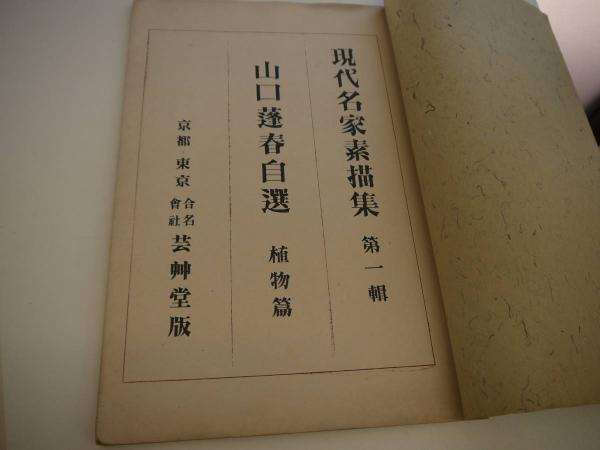 現代名家素描集 第一輯
山口蓬春自選 植物篇
京都・東京 合名會社 芸艸堂版